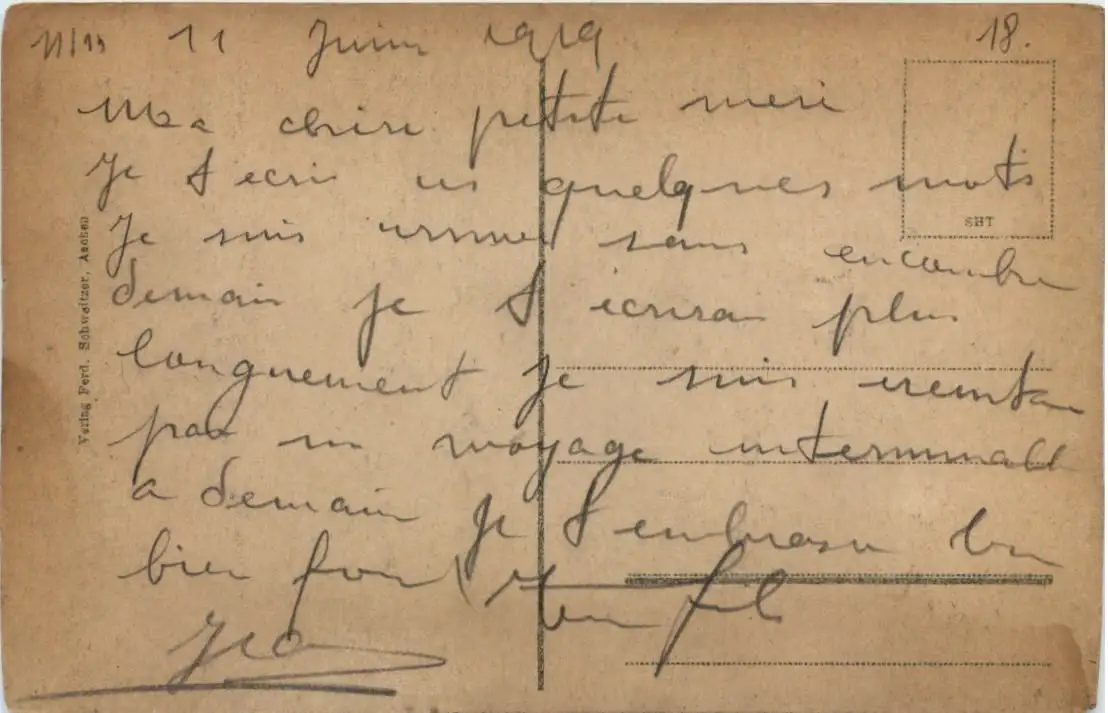 11 Juin 1919
18.
Ma chere petite mere
Je t ecris ces quelques mots
Je suis arrive sans encombre
demain je t ecrirai plus
longuement je suis ereinte
par un voyage interminable
a demain je t embrasse bien
bien fort
Ton fils
Jean
Verlag Ferd. Schweitzer, Aachen
SHT